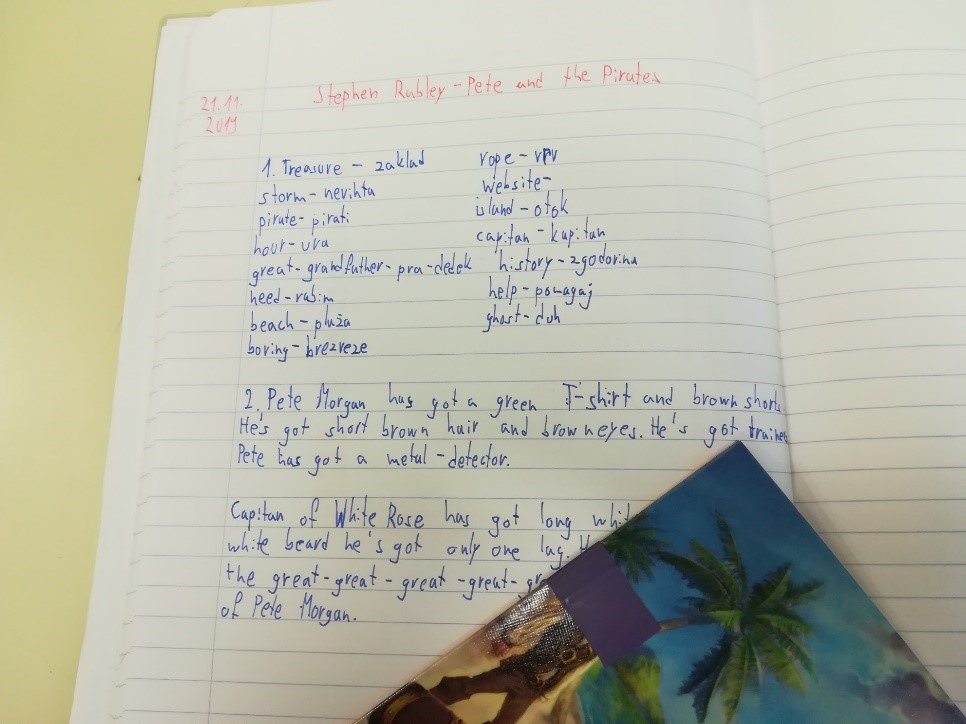 Stephen Rabley - Pete and the Pirates
21.11.
2019
1. Treasure - zaklad
storm - nevihta
pirate - pirati
hour - ura
great-grandfather - pra-dedek
need - rabim
beach - plaža
boring - brezveze
rope - vrv
website -
island - otok
capitan - kapitan
history - zgodovina
help - pomagaj
ghost - duh
2. Pete Morgan has got a green T-shirt and brown shorts
He's got short brown hair and brown eyes. He's got
Pete has got a metal-detector.
Capitan of White Rose has got long
white beard he's got only one lag.
the great-great-great-great-
of Pete Morgan.